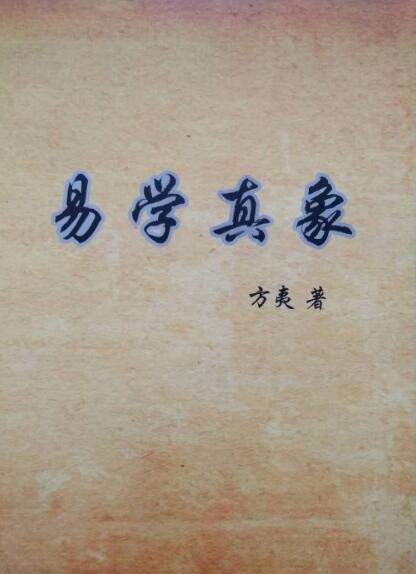 易学真象
方夷 著